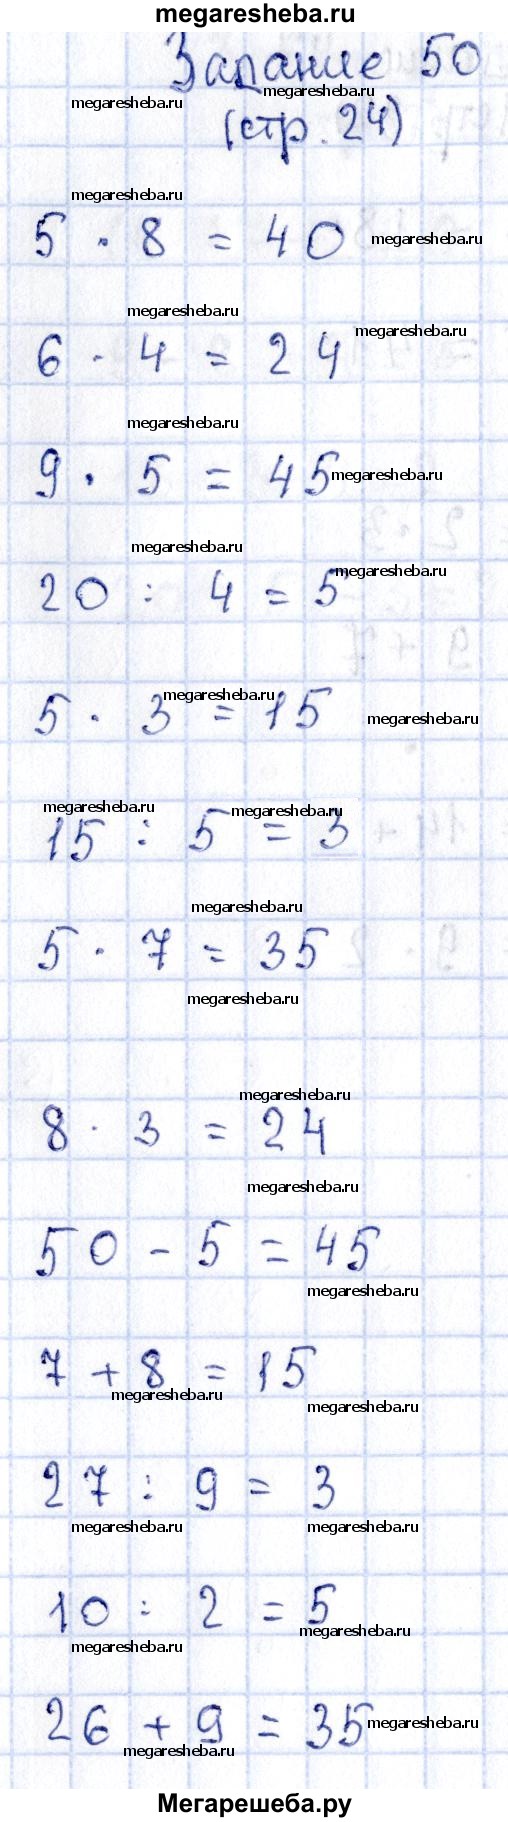 megaresheba.ru
Задание 50
megaresheba.ru
megaresheba.ru
(стр. 24)
megaresheba.ru
5 · 8 = 40
megaresheba.ru
megaresheba.ru
megaresheba.ru
6 · 4 = 24
megaresheba.ru
9 · 5 = 45
megaresheba.ru
megaresheba.ru
megaresheba.ru
20 : 4 = 5
megaresheba.ru
5 · 3 = 15
megaresheba.ru
megaresheba.ru
megaresheba.ru
15 : 5 = 3
megaresheba.ru
5 · 7 = 35
megaresheba.ru
megaresheba.ru
8 · 3 = 24
megaresheba.ru
50 - 5 = 45
megaresheba.ru
7 + 8 = 15
megaresheba.ru
megaresheba.ru
27 : 9 = 3
megaresheba.ru
megaresheba.ru
10 : 2 = 5
megaresheba.ru
megaresheba.ru
26 + 9 = 35
megaresheba.ru
megaresheba.ru
Мегарешеба.ру